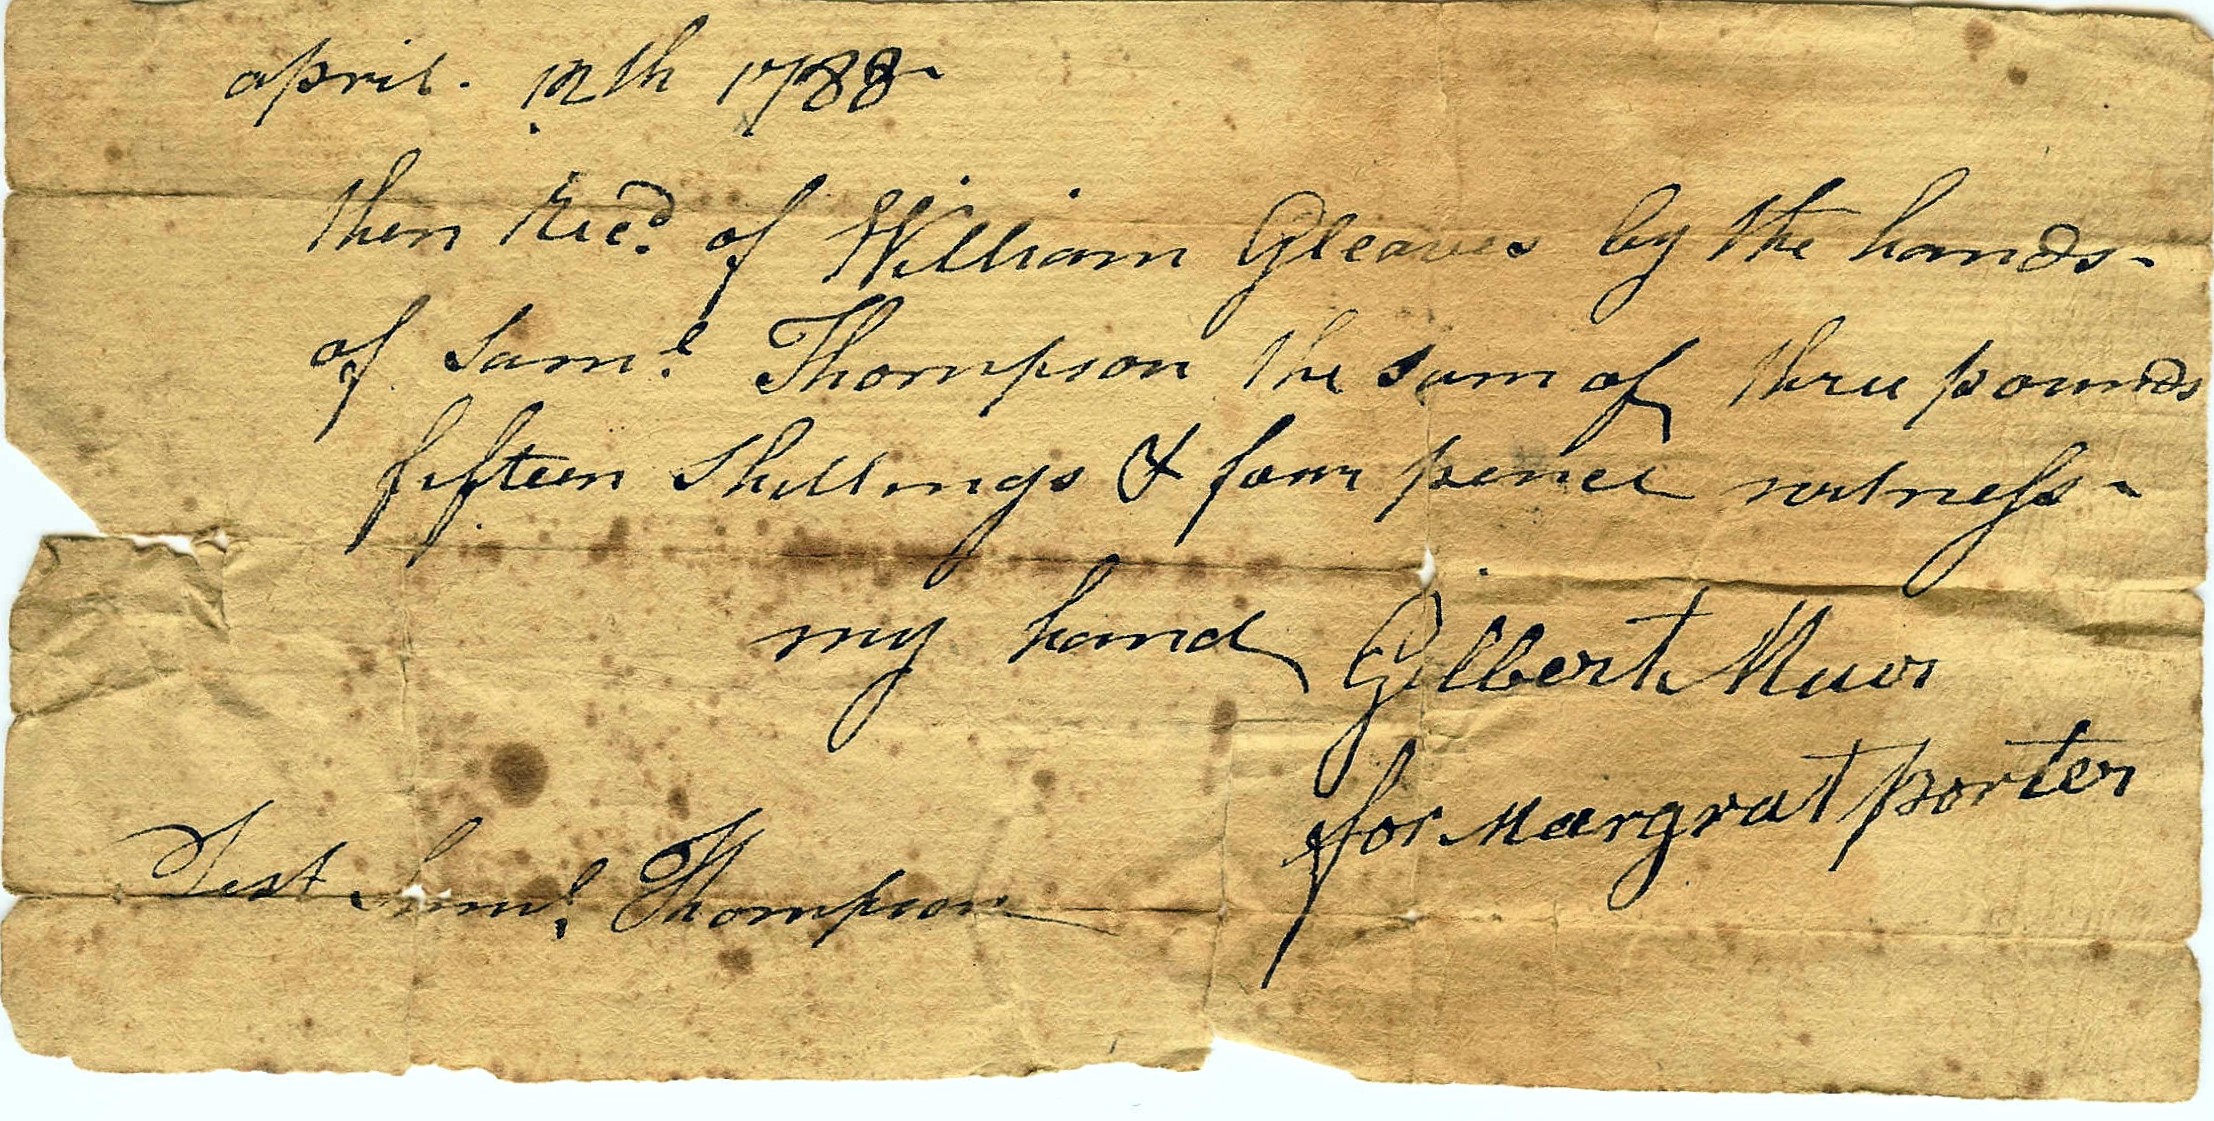 april. 12th 1788
then Recd. of William Gleaves by the hands
of Saml. Thompson the sum of three pounds
fifteen shillings & four pence witness
my hand Gilbert Muir
for Margrat porter
Test Saml. Thompson